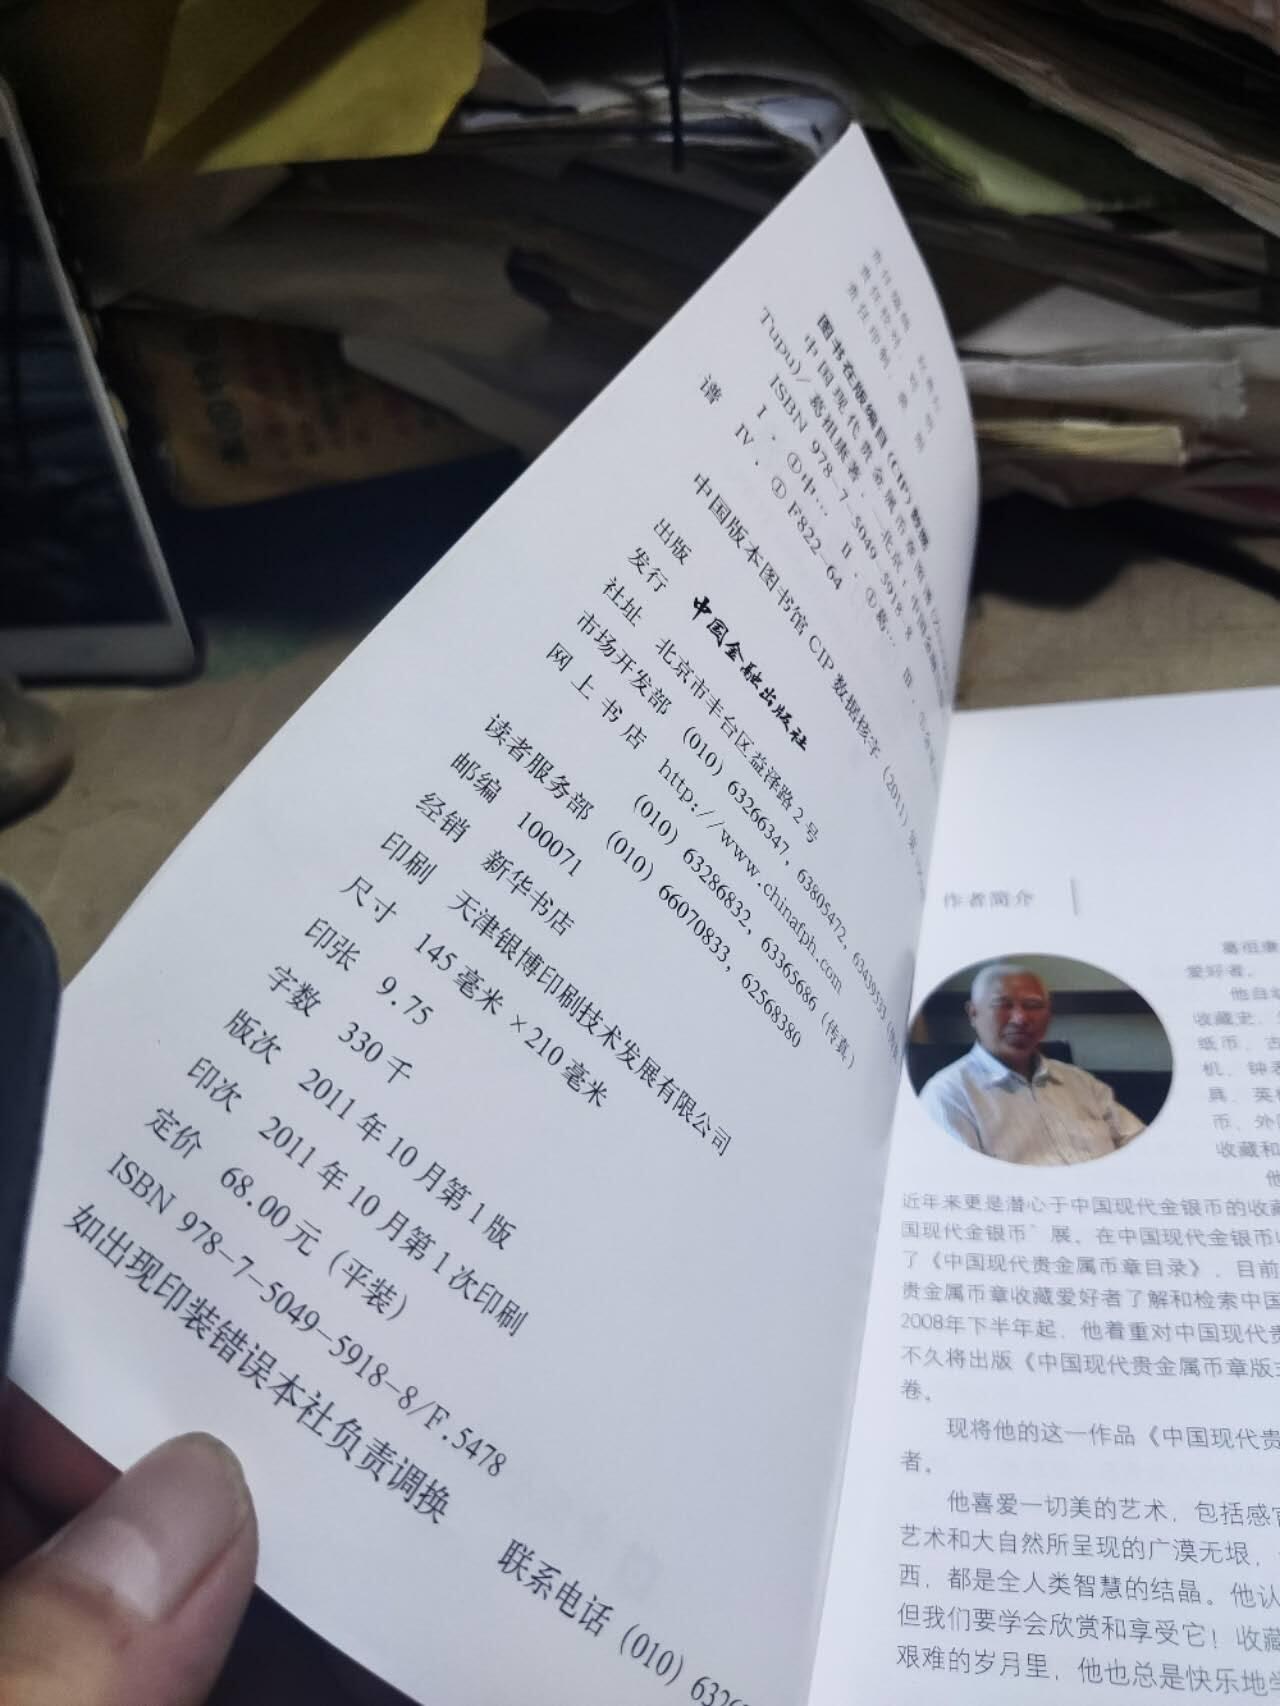 图书在版编目(CIP)数据
中国现代贵金属币章图谱
Tupu)/葛祖康著.—北京:中国金融
ISBN 978-7-5049-5918-8
谱
Ⅰ.①中… Ⅱ.①葛…
Ⅳ.①F822-64
中国版本图书馆CIP数据核字(2011)第
出版
发行
中国金融出版社
社址 北京市丰台区益泽路2号
市场开发部 (010)63266347,63805472,63439533
网上书店 http://www.chinafph.com
(010)63286832,63365686(传真)
读者服务部 (010)66070833,62568380
邮编 100071
经销 新华书店
印刷 天津银博印刷技术发展有限公司
尺寸 145毫米×210毫米
印张 9.75
字数 330千
版次 2011年10月第1版
印次 2011年10月第1次印刷
定价 68.00元(平装)
ISBN 978-7-5049-5918-8/F.5478
如出现印装错误本社负责调换 联系电话(010)632
作者简介
爱好者。
他自
收藏史,
纸币、古
机、钟表
具、英
币、外
收藏和
他
近年来更是潜心于中国现代金银币的收藏
国现代金银币"展。在中国现代金银币
了《中国现代贵金属币章目录》,目前
贵金属币章收藏爱好者了解和检索中国
2008年下半年起,他着重对中国现代贵
不久将出版《中国现代贵金属币章版
卷。
现将他的这一作品《中国现代贵
者。
他喜爱一切美的艺术,包括感官
艺术和大自然所呈现的广漠无垠,
西,都是全人类智慧的结晶。他认
但我们要学会欣赏和享受它!收藏
艰难的岁月里,他也总是快乐地学